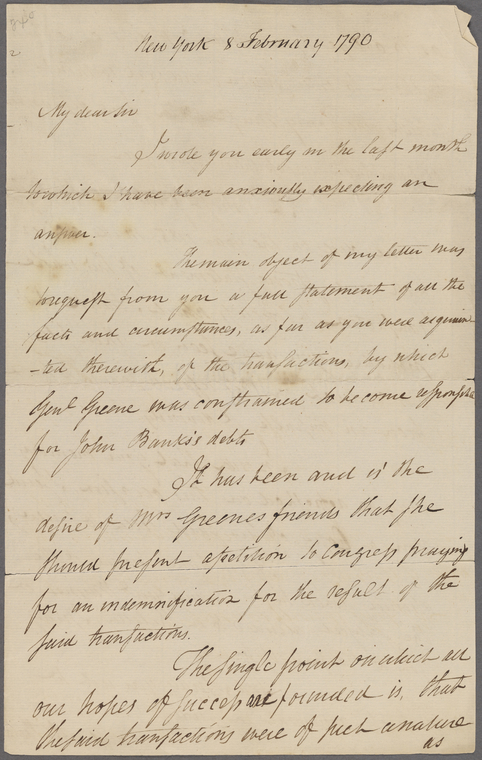 New York 8 February 1790
My dear Sir
I wrote you early in the last month
to which I have been anxiously expecting an
answer.
The main object of my letter was
to request from you a full statement of all the
facts and circumstances, as far as you were acquain
-ted therewith, of the transactions, by which
Genl Greene was constrained to become responsible
for John Banks's debts
It has been and is the
desire of Mrs Greenes friends that she
should present a petition to Congress praying
for an indemnification for the result of the
said transactions.
The single point on which all
our hopes of success are founded is, that
the said transactions were of such a nature
as